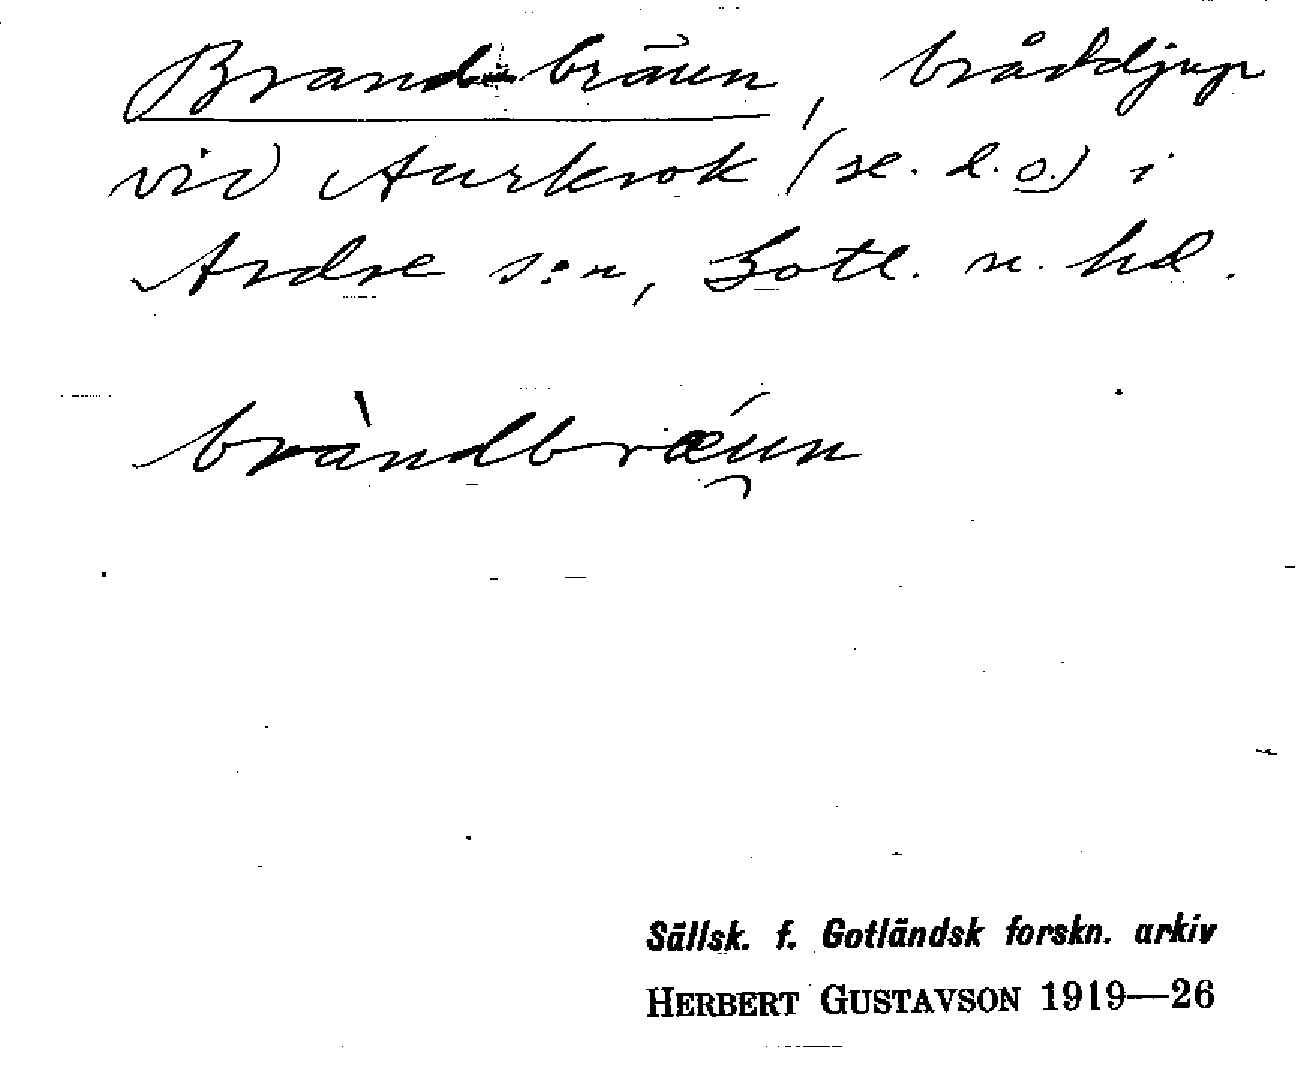 Brandbräun, bråddjup
vid Aurkrok (se. d. o.) i
Ardre s:n, Gotl. n. hd.
bràndbrǽun
Sällsk. f. Gotländsk forskn. arkiv
HERBERT GUSTAVSON 1919—26